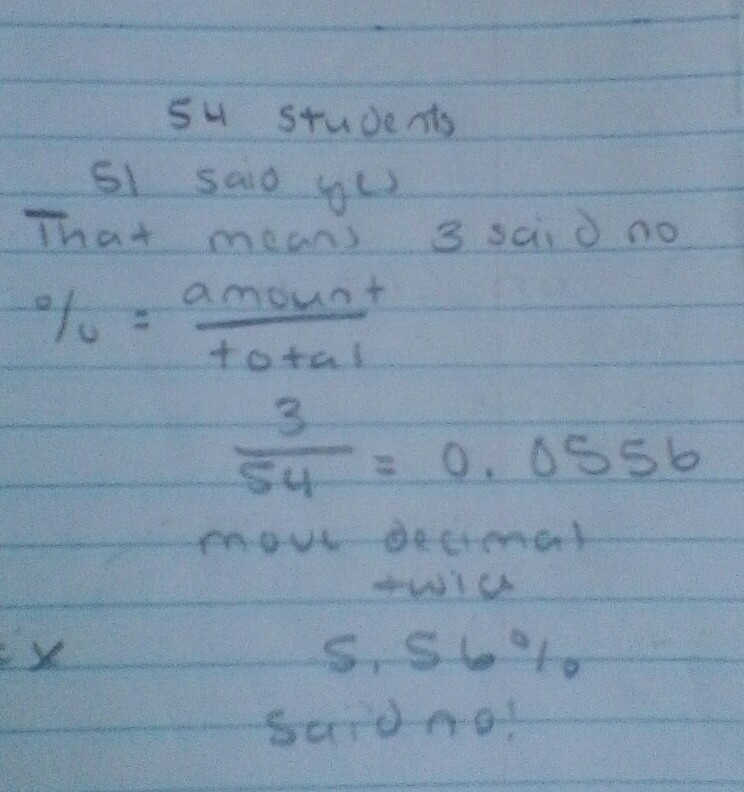 54 students
51 said yes
That means 3 said no
% = amount
total
3
54 = 0.0556
move decimal
twice
x 5.56%
said no!